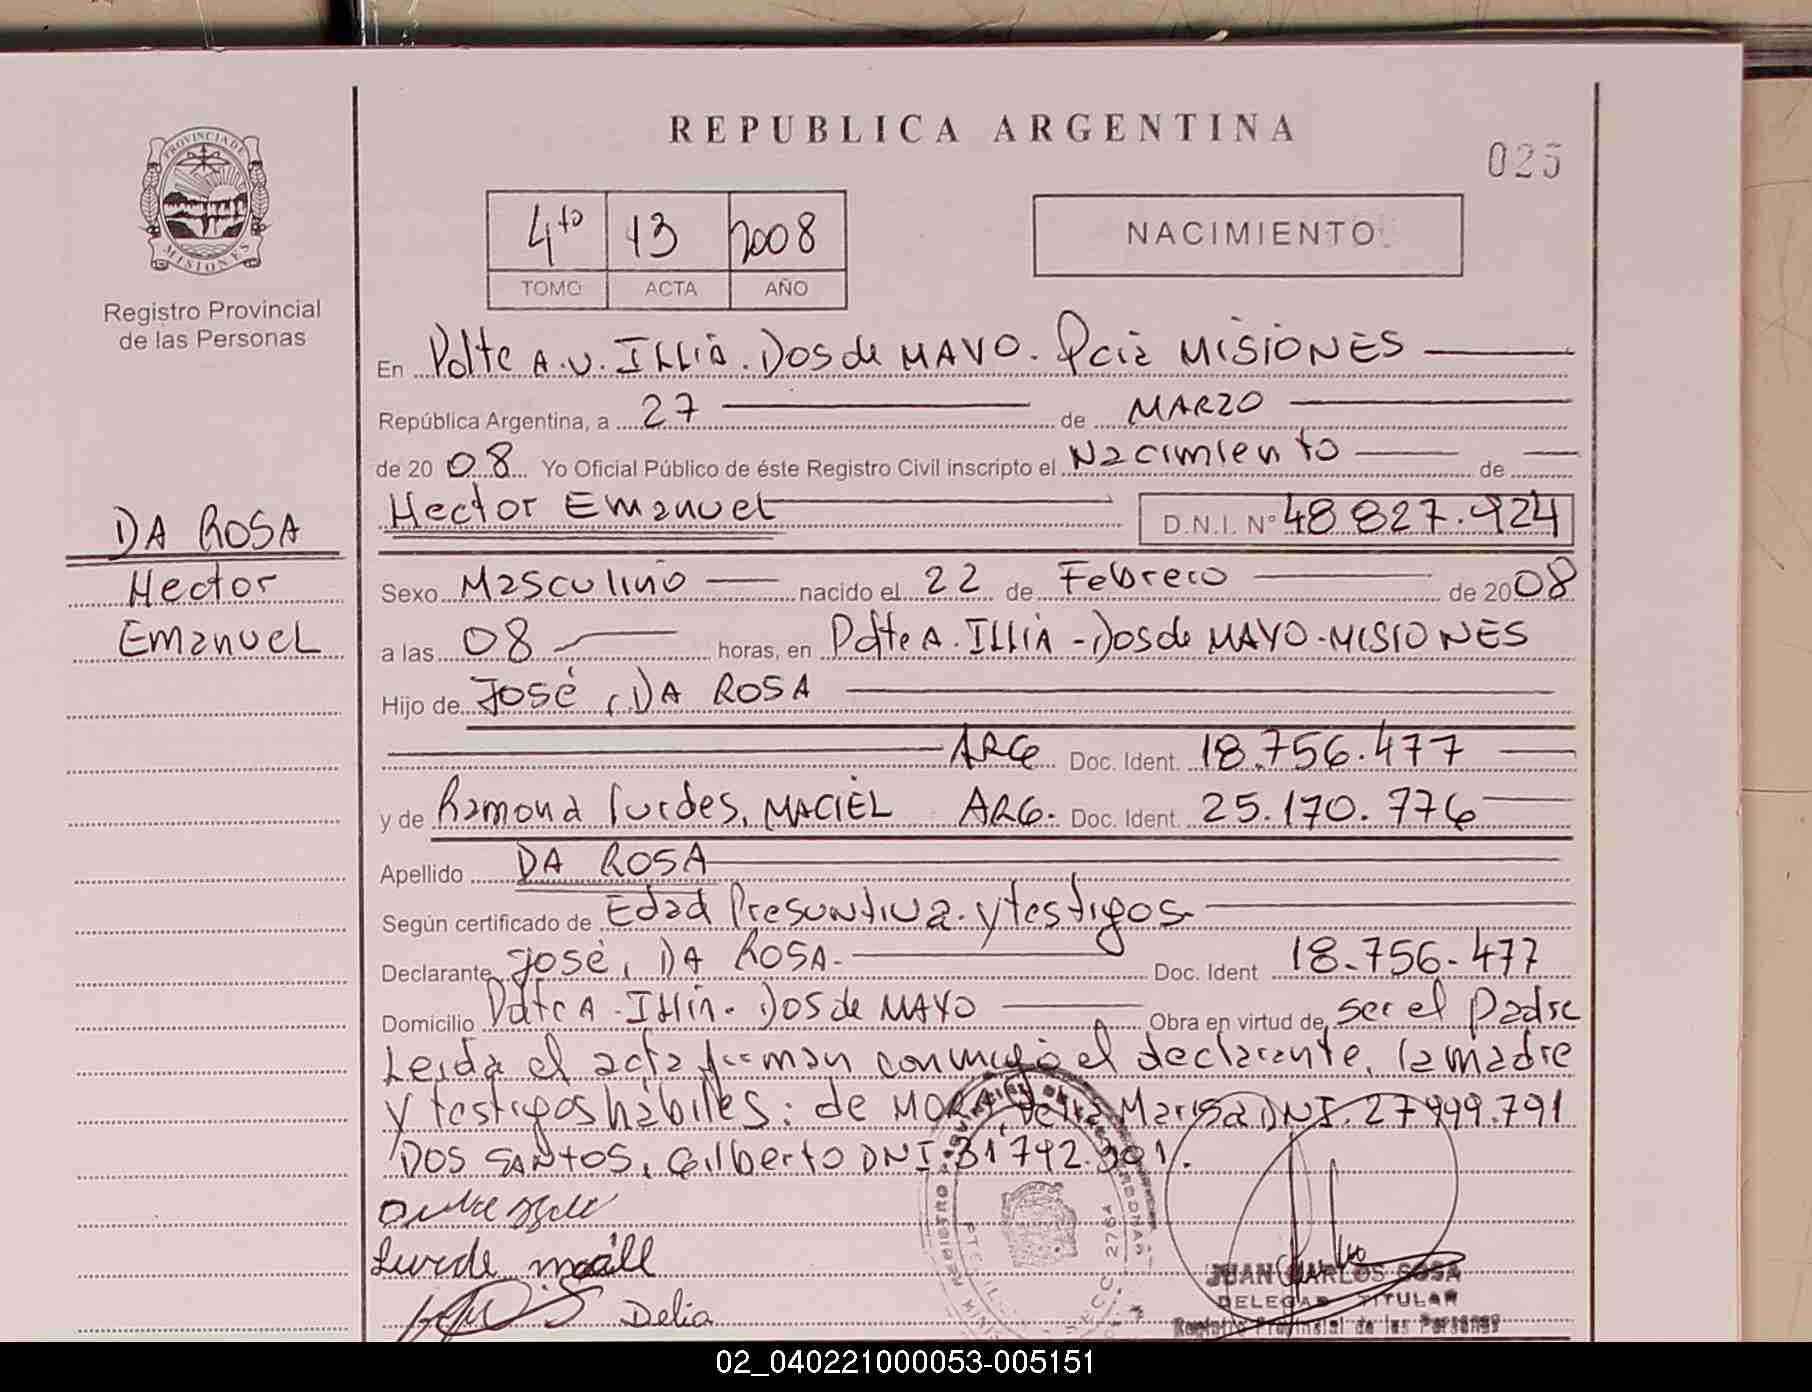 REPUBLICA ARGENTINA
025
PROVINCIA DE
MISIONES
Registro Provincial
de las Personas
4to 13 2008
TOMO ACTA AÑO
NACIMIENTO
En Pdte A.U. ILLIA. Dos de MAYO. Pcia MISIONES
República Argentina, a 27 de MARZO
de 20 08 Yo Oficial Público de éste Registro Civil inscripto el Nacimiento de
Hector Emanuel D.N.I. Nº 48 827.924
DA ROSA
Hector
Emanuel
Sexo Masculino nacido el 22 de Febrero de 2008
a las 08 horas, en Pdte A. ILLIA - Dos de MAYO - MISIONES
Hijo de José, DA ROSA
ARG Doc. Ident. 18.756.477
y de Ramona Lurdes, MACIEL ARG. Doc. Ident. 25.170.776
Apellido DA ROSA
Según certificado de Edad Presuntiva. y testigos
Declarante José, DA ROSA. Doc. Ident 18.756.477
Domicilio Pdte A. Illia. Dos de MAYO Obra en virtud de, ser el padre
Leida el acta firman conmigo el declarante, la madre
y testigos hábiles: de Marisa DNI. 27999.791
DOS SANTOS, Gilberto DNI 31792.301.
Lurde
Delia
JUAN CARLOS SOSA
DELEGADO TITULAR
Registro Provincial de las Personas
02_040221000053-005151